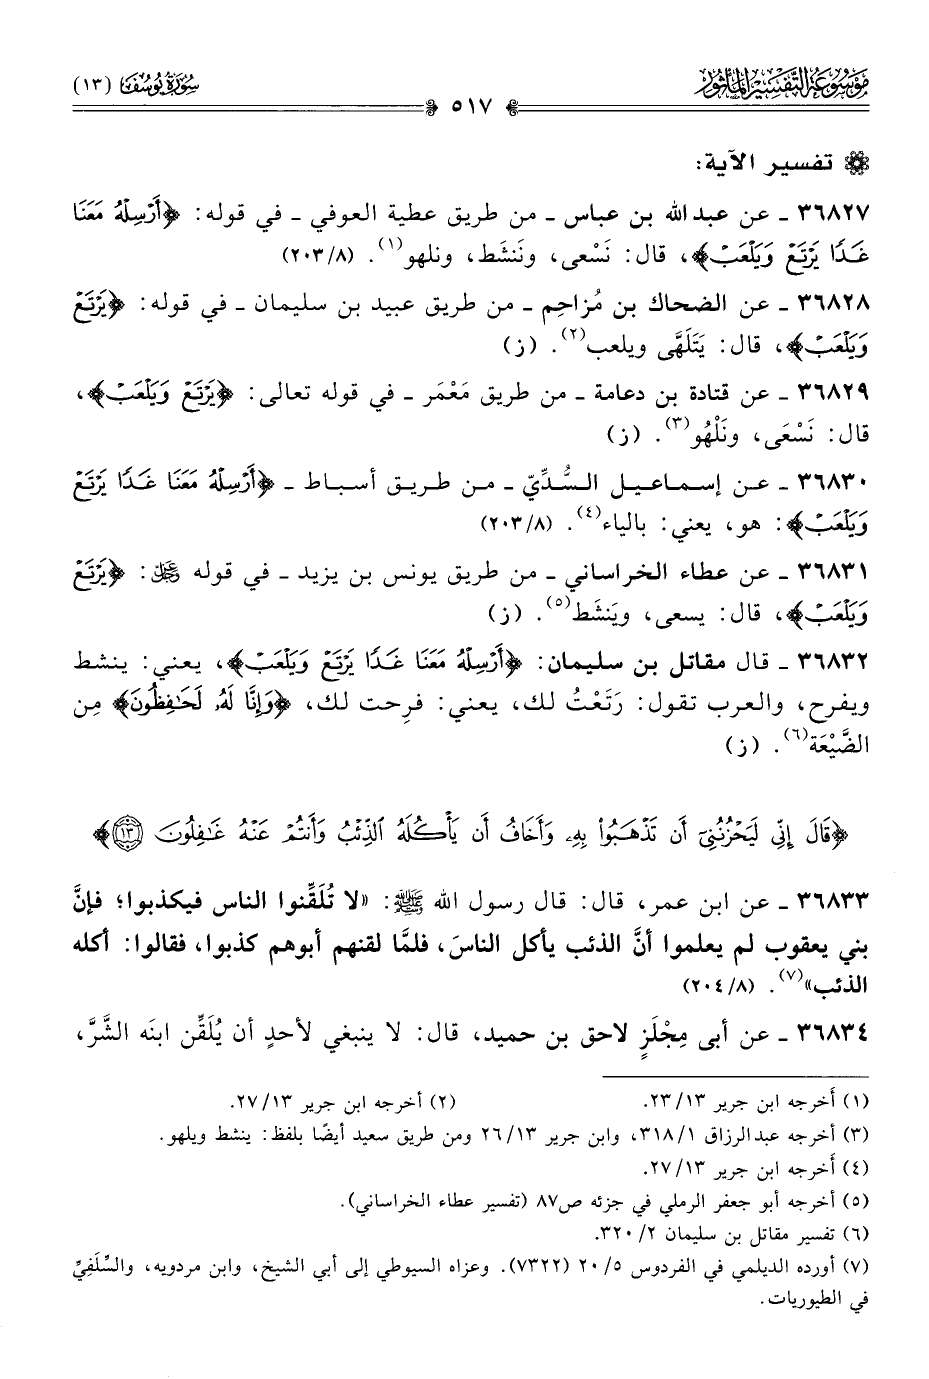 موسوعة التفسير المأثور
سورة يوسف (١٣)
٥١٧
تفسير الآية:
٣٦٨٢٧ ـ عن عبد الله بن عباس ـ من طريق عطية العوفي ـ في قوله: ﴿أَرْسِلْهُ مَعَنَا
غَدًا يَرْتَعْ وَيَلْعَبْ﴾، قال: نَسْعى، ونَنشَط، ونلهو(١). (٢٠٣/٨)
٣٦٨٢٨ ـ عن الضحاك بن مُزاحِم ـ من طريق عبيد بن سليمان ـ في قوله: ﴿يَرْتَعْ
وَيَلْعَبْ﴾، قال: يَتَلَهَّى ويلعب(٢). (ز)
٣٦٨٢٩ ـ عن قتادة بن دعامة ـ من طريق مَعْمَر ـ في قوله تعالى: ﴿يَرْتَعْ وَيَلْعَبْ﴾،
قال: نَسْعَى، ونَلْهُو(٣). (ز)
٣٦٨٣٠ ـ عن إسماعيل السُّدِّيّ ـ من طريق أسباط ـ ﴿أَرْسِلْهُ مَعَنَا غَدًا يَرْتَعْ
وَيَلْعَبْ﴾: هو، يعني: بالياء(٤). (٢٠٣/٨)
٣٦٨٣١ ـ عن عطاء الخراساني ـ من طريق يونس بن يزيد ـ في قوله ﷿: ﴿يَرْتَعْ
وَيَلْعَبْ﴾، قال: يسعى، ويَنشَط(٥). (ز)
٣٦٨٣٢ ـ قال مقاتل بن سليمان: ﴿أَرْسِلْهُ مَعَنَا غَدًا يَرْتَعْ وَيَلْعَبْ﴾، يعني: ينشط
ويفرح، والعرب تقول: رَتَعْتُ لك، يعني: فرِحت لك، ﴿وَإِنَّا لَهُۥ لَحَٰفِظُونَ﴾ مِن
الضَّيْعَة(٦). (ز)
﴿قَالَ إِنِّي لَيَحْزُنُنِيٓ أَن تَذْهَبُوا۟ بِهِۦ وَأَخَافُ أَن يَأْكُلَهُ ٱلذِّئْبُ وَأَنتُمْ عَنْهُ غَٰفِلُونَ ١٣﴾
٣٦٨٣٣ ـ عن ابن عمر، قال: قال رسول الله ﷺ: «لا تُلَقِّنوا الناس فيكذبوا؛ فإنَّ
بني يعقوب لم يعلموا أنَّ الذئب يأكل الناسَ، فلمَّا لقنهم أبوهم كذبوا، فقالوا: أكله
الذئب»(٧). (٢٠٤/٨)
٣٦٨٣٤ ـ عن أبي مِجْلَزٍ لاحق بن حميد، قال: لا ينبغي لأحدٍ أن يُلَقِّن ابنَه الشَّرَّ،
(١) أخرجه ابن جرير ٢٣/١٣. (٢) أخرجه ابن جرير ٢٧/١٣.
(٣) أخرجه عبدالرزاق ٣١٨/١، وابن جرير ٢٦/١٣ ومن طريق سعيد أيضًا بلفظ: ينشط ويلهو.
(٤) أخرجه ابن جرير ٢٧/١٣.
(٥) أخرجه أبو جعفر الرملي في جزئه ص٨٧ (تفسير عطاء الخراساني).
(٦) تفسير مقاتل بن سليمان ٣٢٠/٢.
(٧) أورده الديلمي في الفردوس ٢٠/٥ (٧٣٢٢). وعزاه السيوطي إلى أبي الشيخ، وابن مردويه، والسِّلَفِيِّ
في الطيوريات.